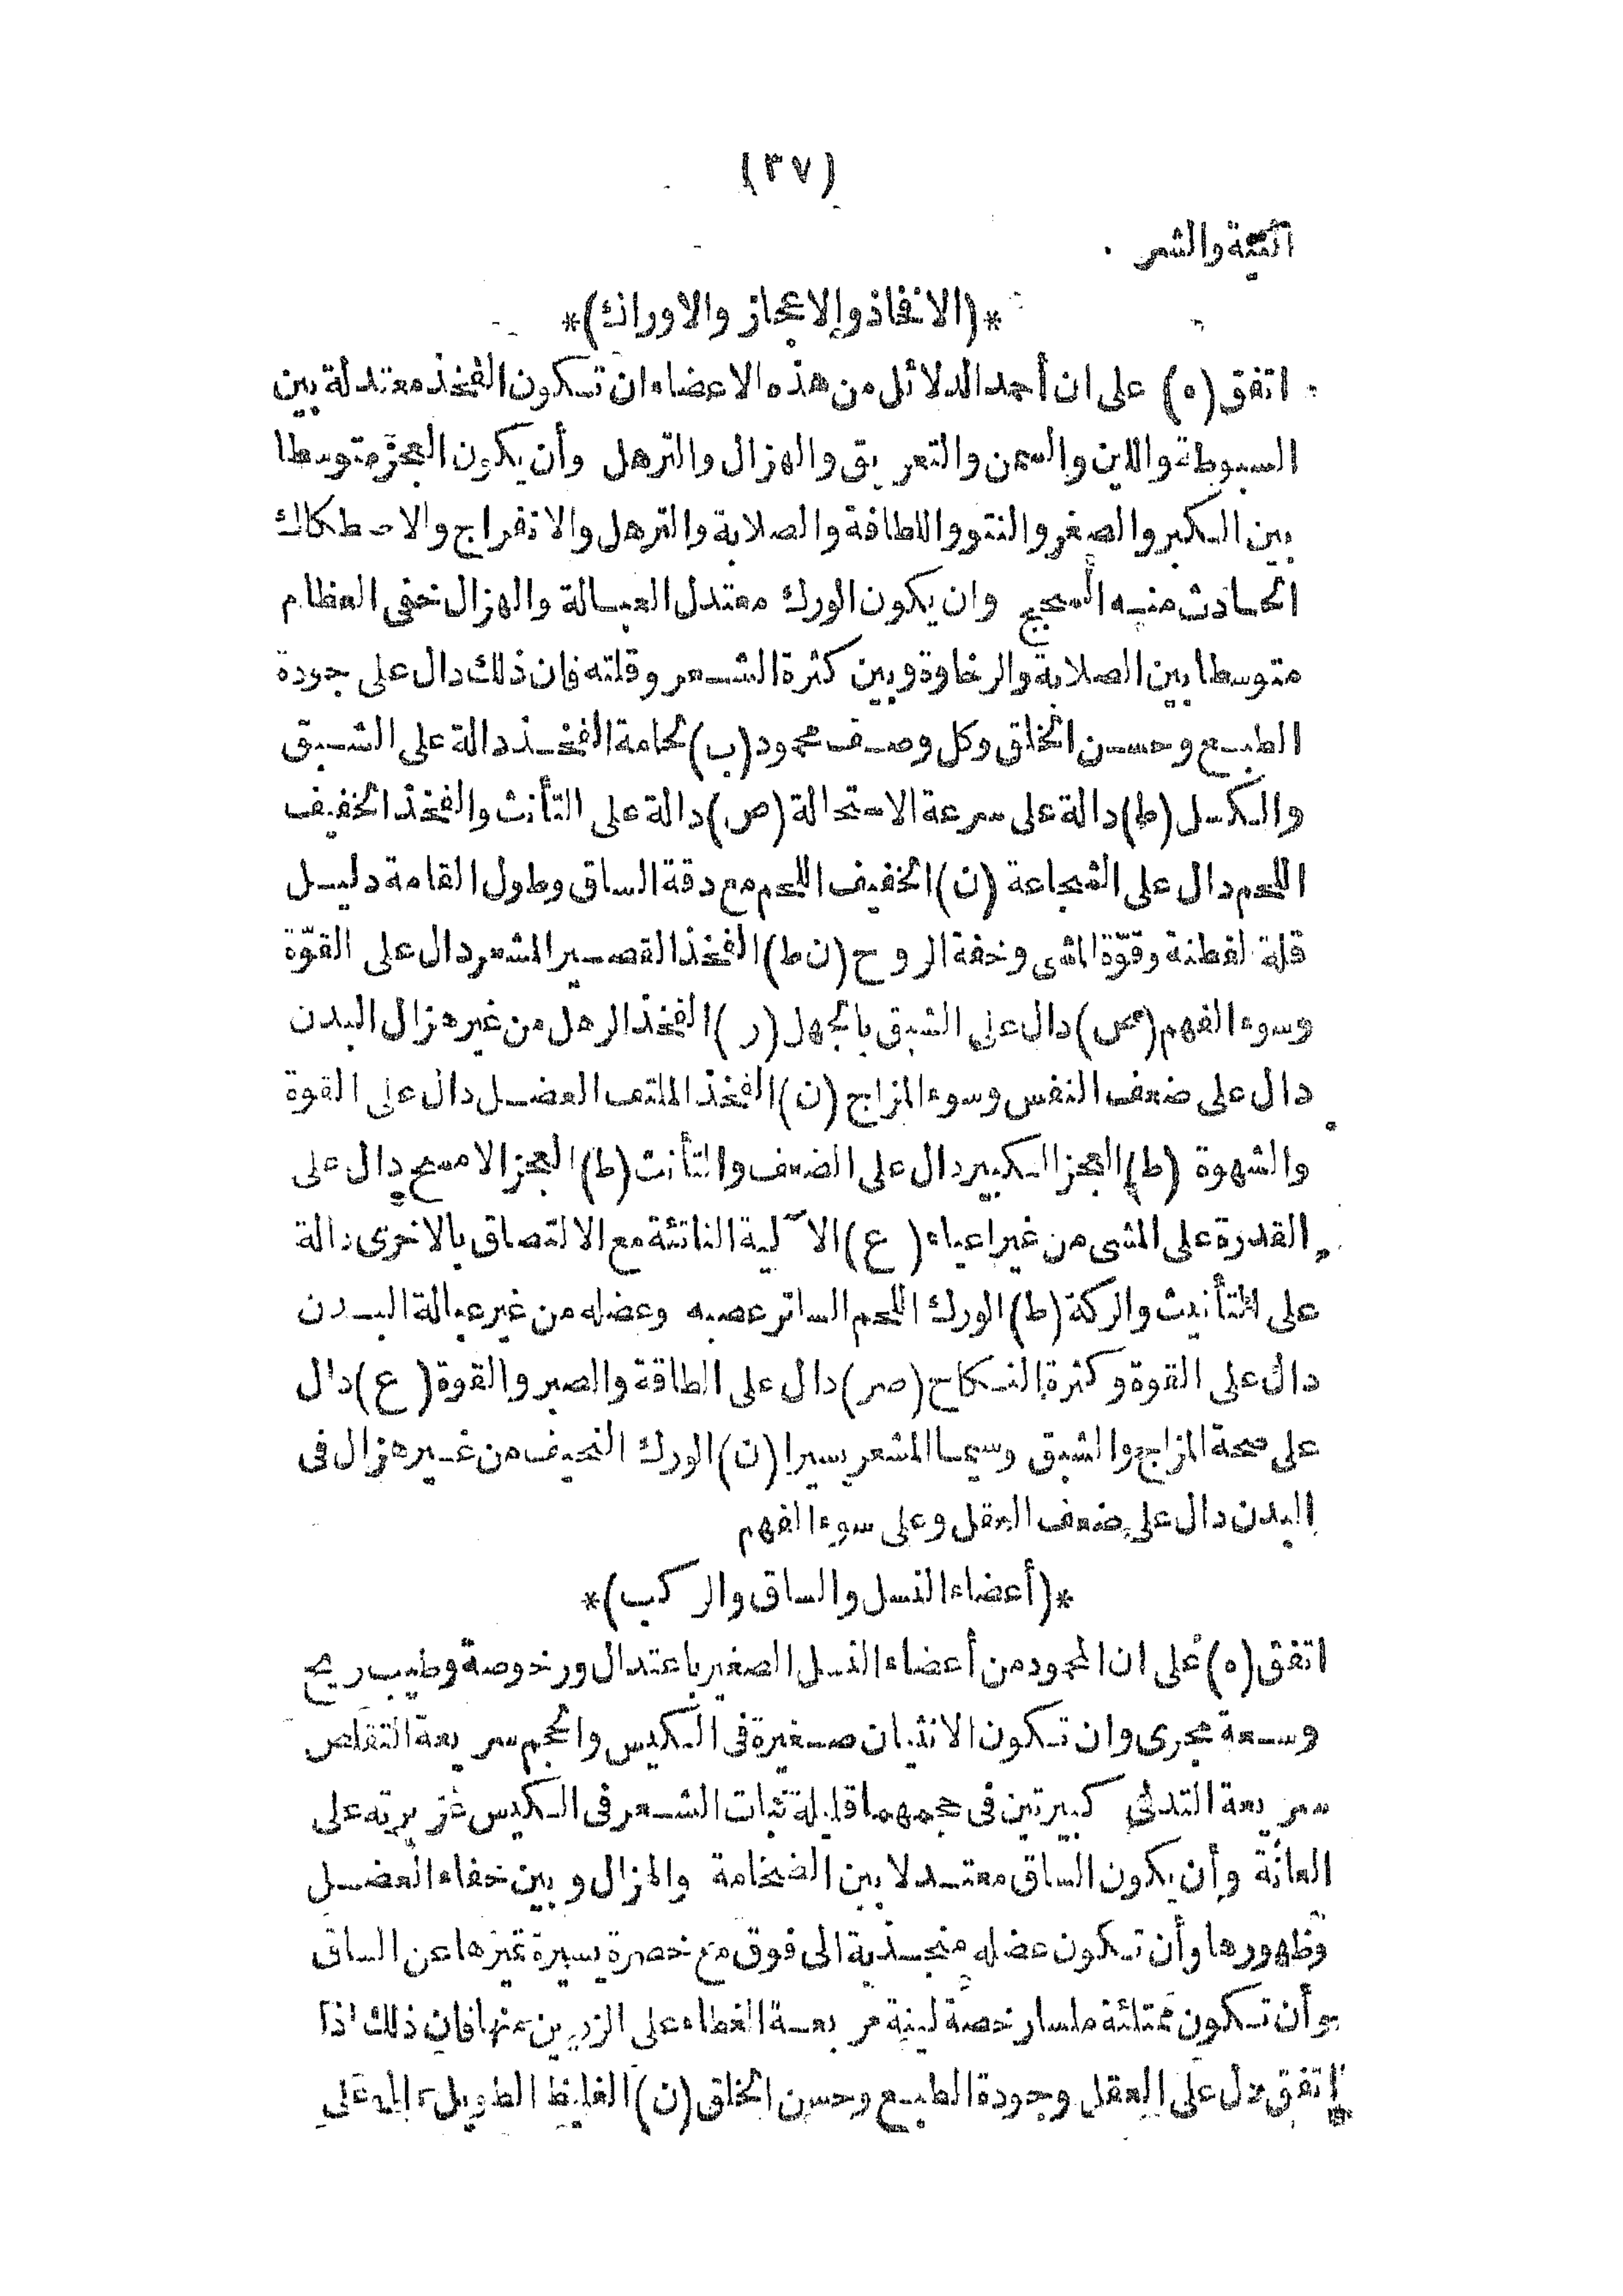 (٣٧)
والشعر
*(الانفاذ والاعجاز والاوراك)*
اتفق (ه) على ان أحمد الدلائل من هذه الاعضاء ان تكون الفخذ معتدلة بين
السبوطة واللين والسمن والتعريق والهزال والترهل وأن يكون العجز متوسطا
بين الكبر والصغر والنتو واللطافة والصلابة والترهل والانفراج والاصطكاك
الحادث منه السحج وان يكون الورك معتدل العبالة والهزال خفى العظام
متوسطا بين الصلابة والرخاوة وبين كثرة الشعر وقلته فان ذلك دال على جودة
الطبع وحسن الخلق وكل وصف محمود (ب) لحامة الفخذ دالة على الشبق
والكسل (ط) دالة على سرعة الاستحالة (ص) دالة على التأنث والفخذ الخفيف
اللحم دال على الشجاعة (ن) الخفيف اللحم مع دقة الساق وطول القامة دليل
قلة لفطنة وقوّة المشى وخفة الروح (ن ط) الفخذ القصير المشعر دال على القوّة
وسوء الفهم (ص) دال على الشبق بالجهل (ر) الفخذ الرهل من غير هزال البدن
دال على ضعف النفس وسوء المزاج (ن) الفخذ الملتف العضل دال على القوة
والشهوة (ط) العجز الكبير دال على الضعف والتأنث (ط) العجز الامسح دال على
القدرة على المشى من غير اعياء (ع) الآلية الناتئة مع الالتصاق بالاخرى دالة
على التأنيث والركة (ط) الورك اللحم الساتر عصبه وعضله من غير عبالة البدن
دال على القوة وكثرة النكاح (صر) دال على الطاقة والصبر والقوة (ع) دال
على صحة المزاج والشبق وسيما المشعر يسيرا (ن) الورك النحيف من غير هزال فى
البدن دال على ضعف العقل وعلى سوء الفهم
*(أعضاء النسل والساق والركب)*
اتفق (ه) على ان المحمود من أعضاء النسل الصغير باعتدال ورخوصة وطيب ريح
وسعة مجرى وان تكون الانثيان صغيرة فى الكيس والحجم سريعة التقلص
سريعة التدلى كبيرتين فى حجمهما قليلة نبات الشعر فى الكيس غزيرته على
العانة وأن يكون الساق معتدلا بين الضخامة والهزال وبين خفاء العضل
وظهورها وأن تكون عضله منجذبة الى فوق مع خصرة يسيرة تميزها عن الساق
وأن تكون ممتلئة ملسا رخصة لينة مربعة الغطاء على الزرين منها فان ذلك اذا
اتفق دل على العقل وجودة الطبع وحسن الخلق (ن) الغليظ الطويل على